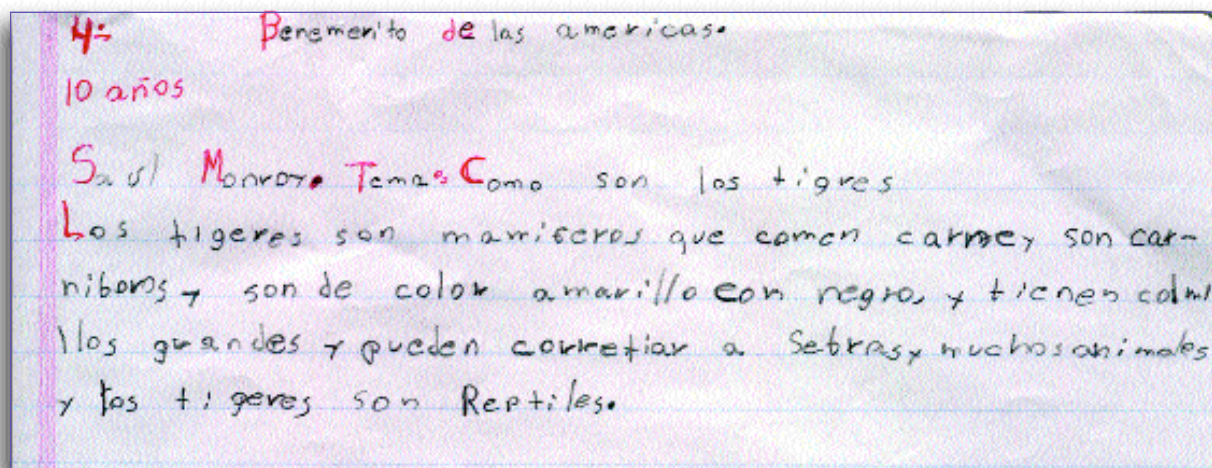 4= Benemerito de las americas.
10 años
Saul Monroy. Tema: Como son los tigres
Los tigeres son mamiseros que comen carne y son car-
niboros y son de color amarillo con negro, y tienen colmi
llos grandes y pueden corretiar a Sebras y muchos animales
y los tigeres son Reptiles.